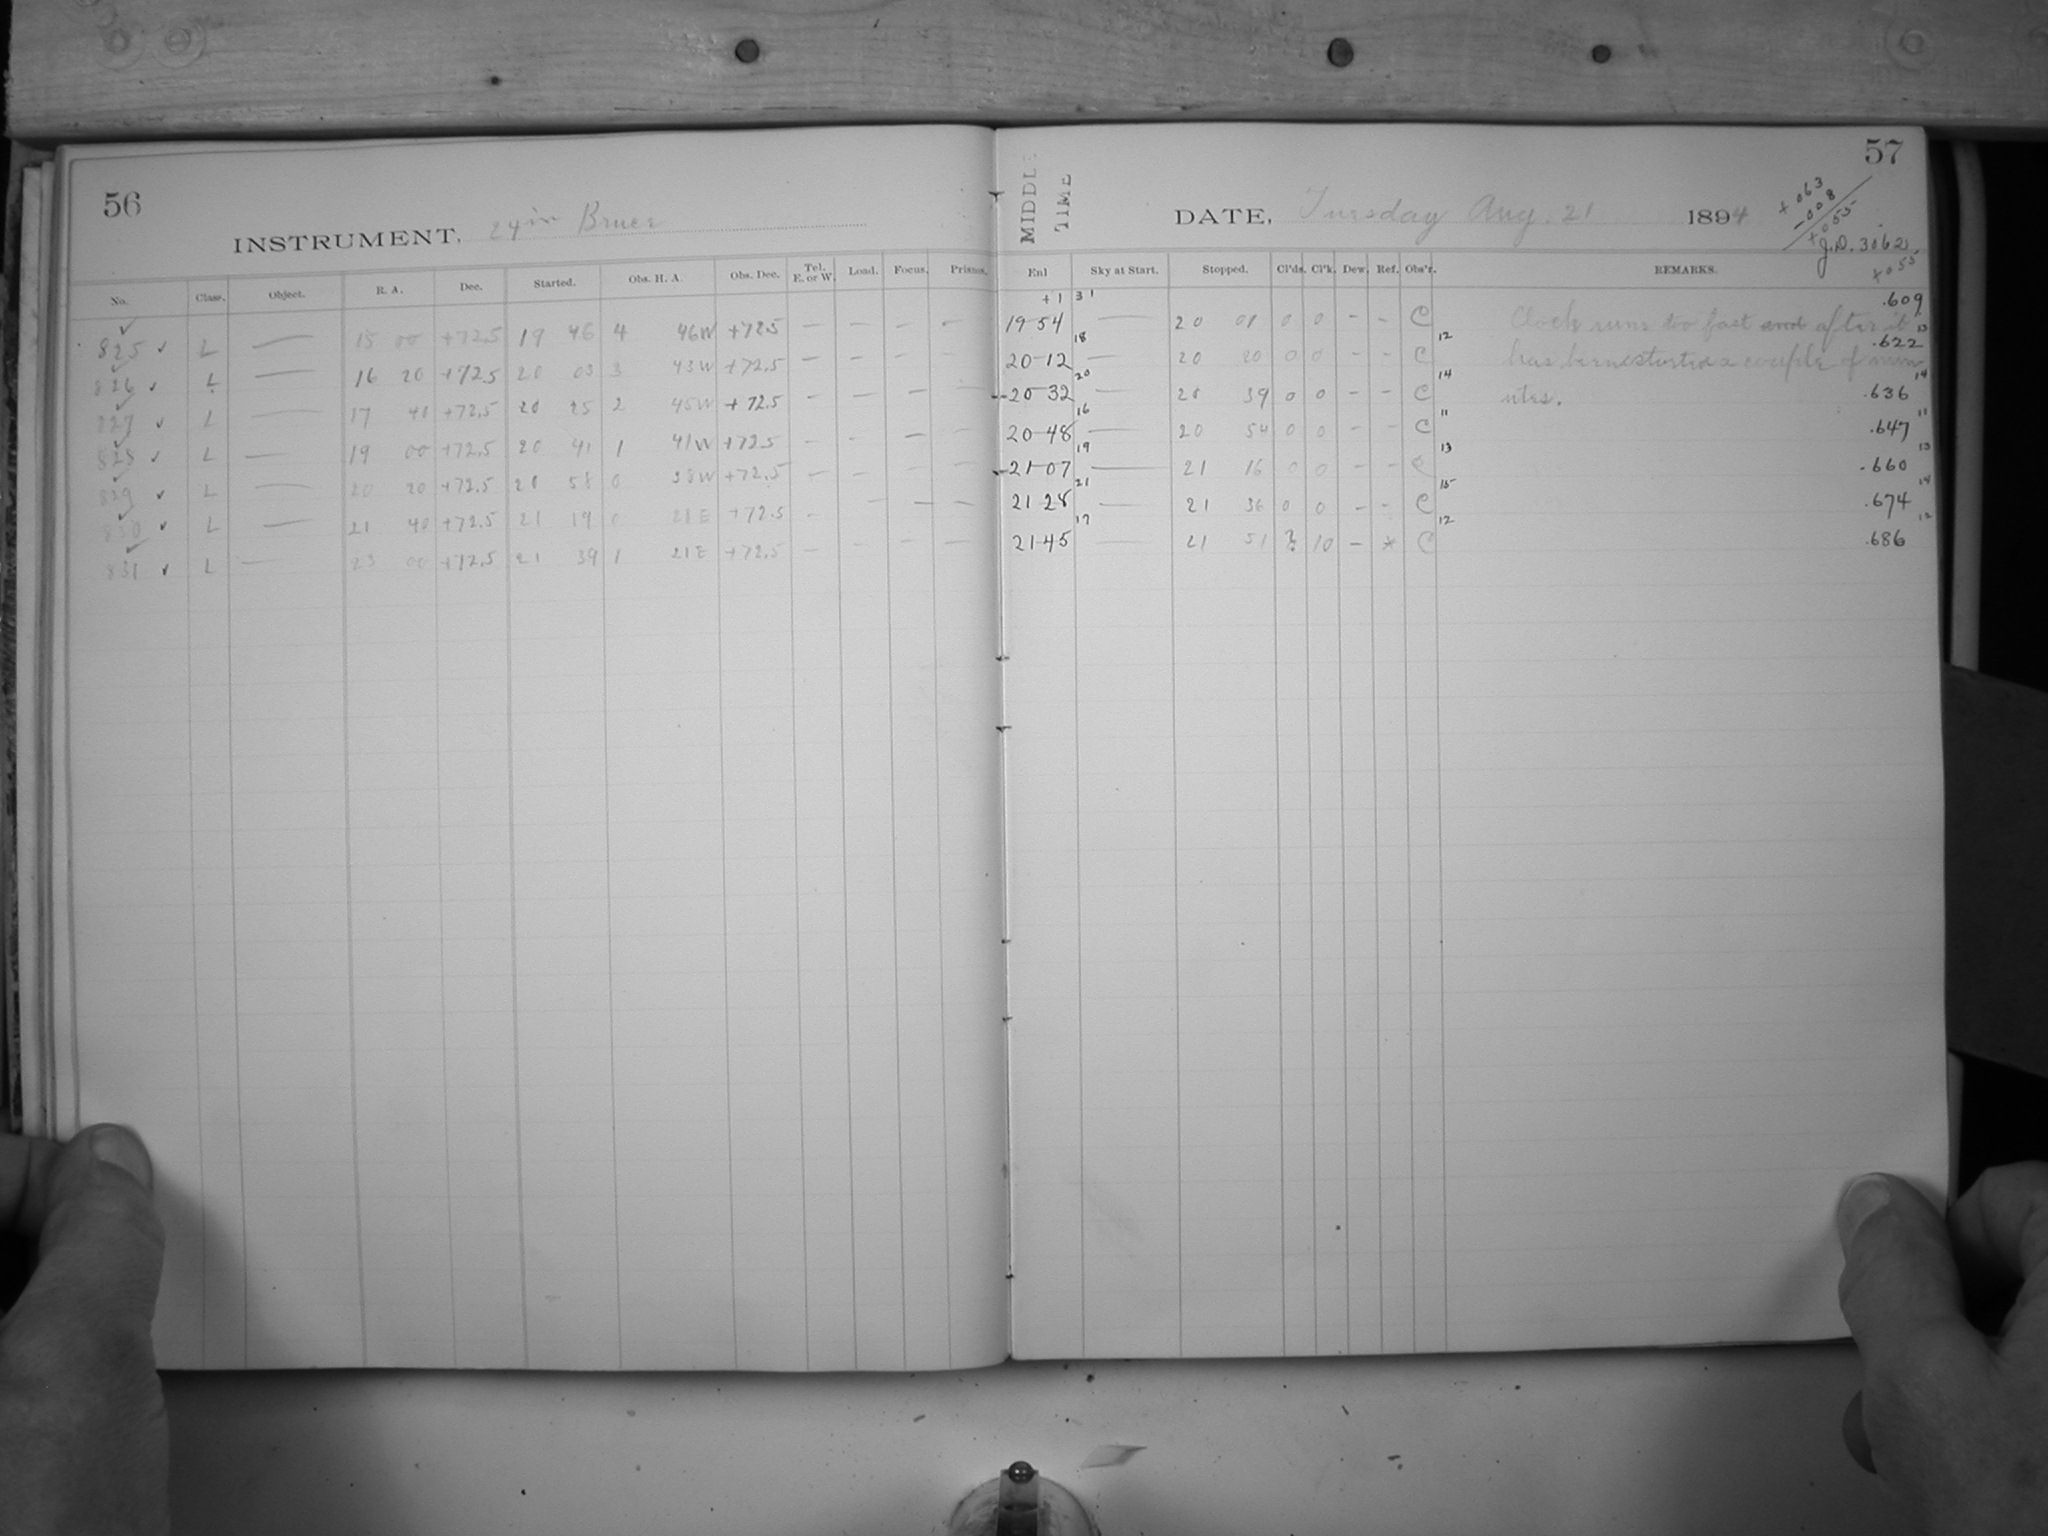 56
INSTRUMENT, 24 in Bruce
No. Class. Object. R. A. Dec. Started. Obs. H. A. Obs. Dec. Tel. E. or W. Load. Focus. Prisms.
825 ✓ L — 15 00 +72.5 19 46 4 46W +72.5 — — — —
826 ✓ L — 16 20 +72.5 20 03 3 43W +72.5 — — — —
827 ✓ L — 17 40 +72.5 20 25 2 45W +72.5 — — — —
828 ✓ L — 19 00 +72.5 20 41 1 41W +72.5 — — — —
829 ✓ L — 20 20 +72.5 20 58 0 38W +72.5 — — — —
830 ✓ L — 21 40 +72.5 21 19 0 21E +72.5 — — — —
831 ✓ L — 23 00 +72.5 21 39 1 21E +72.5 — — — —
57
MIDDLE
TIME
DATE, Tuesday Aug. 21 1894
+.063
-.008
+.055
J.D. 3062
+.055
Enl Sky at Start. Stopped. Cl'ds. Cl'k. Dew. Ref. Obs'r. REMARKS.
+1 31
19-54 — 20 01 0 0 - - C Clock runs too fast and after it .609
18 12 13
20-12 — 20 20 0 0 - - C has been started a couple of min .622
20 14 14
20-32 — 20 39 0 0 - - C utes. .636
16 11 11
20-48 — 20 54 0 0 - - C .647
19 13 13
21-07 — 21 16 0 0 - - C .660
21 15 14
21-28 — 21 36 0 0 - - C .674
17 12 12
21-45 — 21 51 10 - * C .686